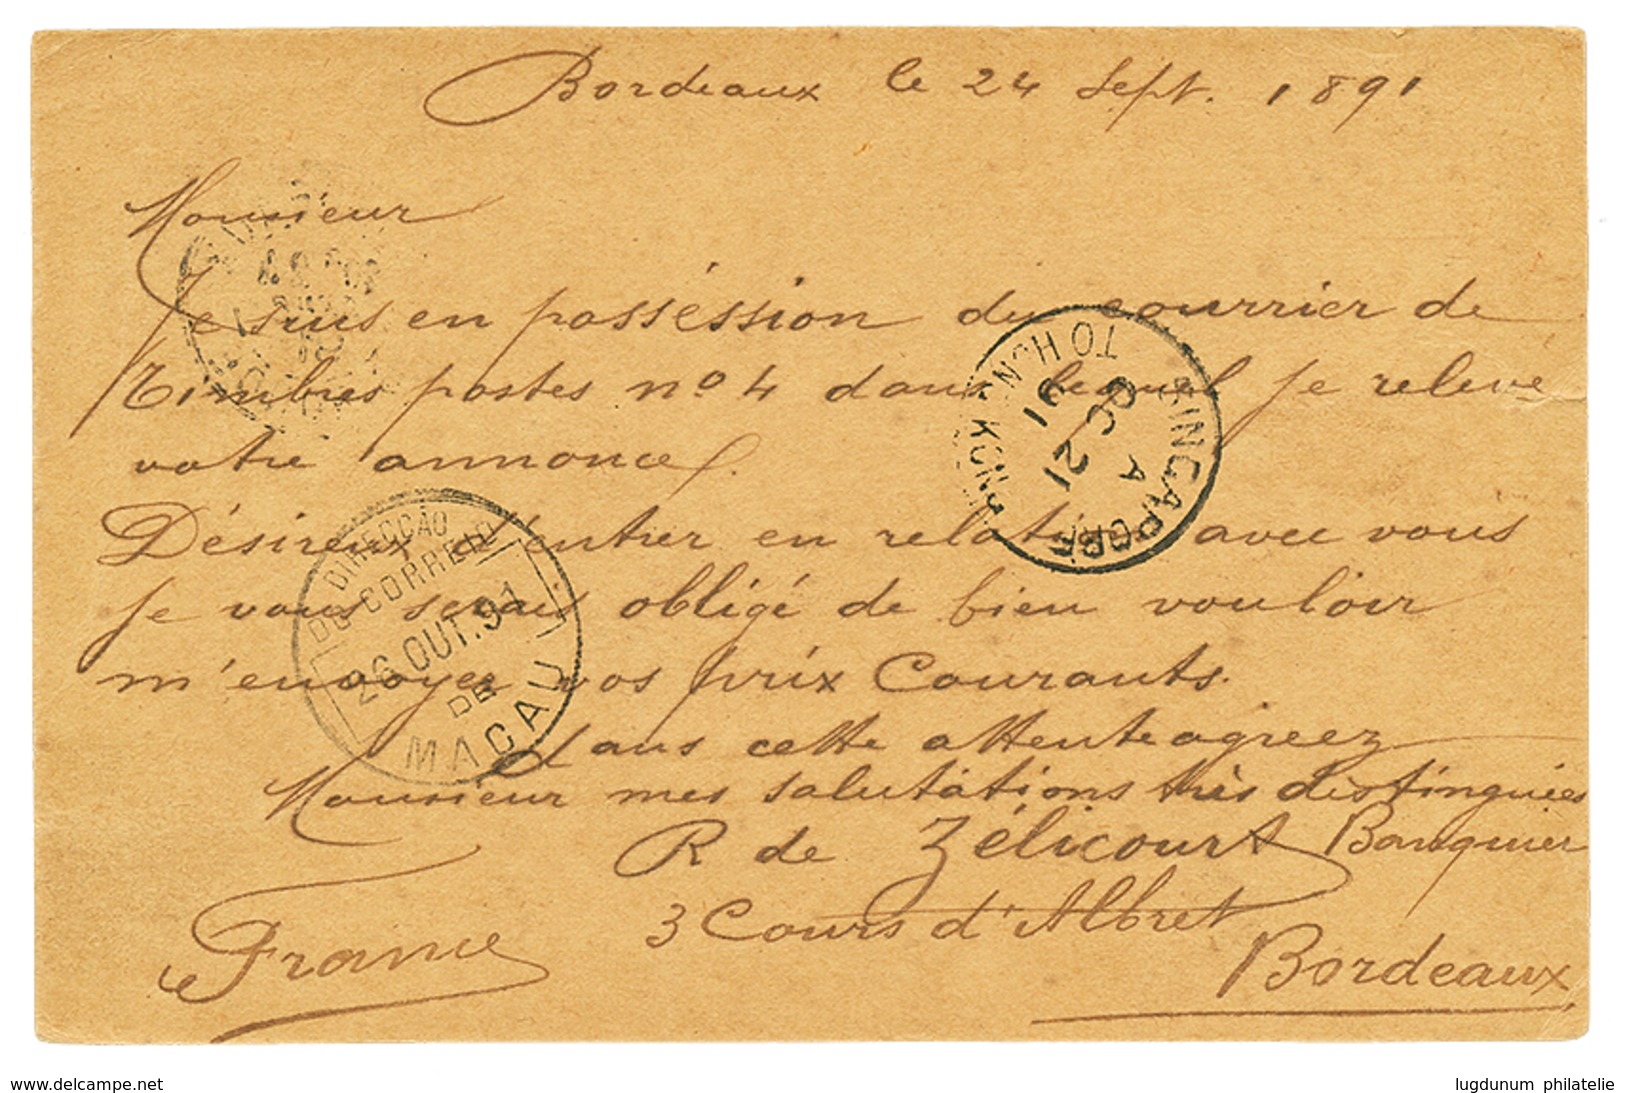 Bordeaux le 24 Sept. 1891
Monsieur
Je suis en posséssion du courrier de
Timbres postes no 4 dans lequel je relève
votre annonce.
Désireux d'entrer en relation avec vous
je vous serais obligé de bien vouloir
m'envoyer vos prix Courants.
dans cette attente agreez
Monsieur mes salutations très distinguées
R de Zélicourt Banquier
3 Cours d'Albret
France
Bordeaux
SINGAPORE TO HONG KONG
A
OC 21
91
DIRECÇÃO
DO CORREIO
26 OUT. 91
DE
MACAU
www.delcampe.net
lugdunum philatelie